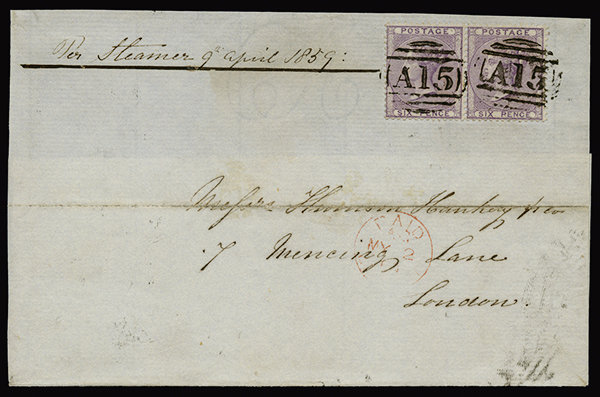 Per Steamer 9th April 1859:
POSTAGE POSTAGE
A15 A15
SIX PENCE SIX PENCE
Messrs Thomson Hankey & Co
PAID
7 Mencing Lane
MY 2
London.